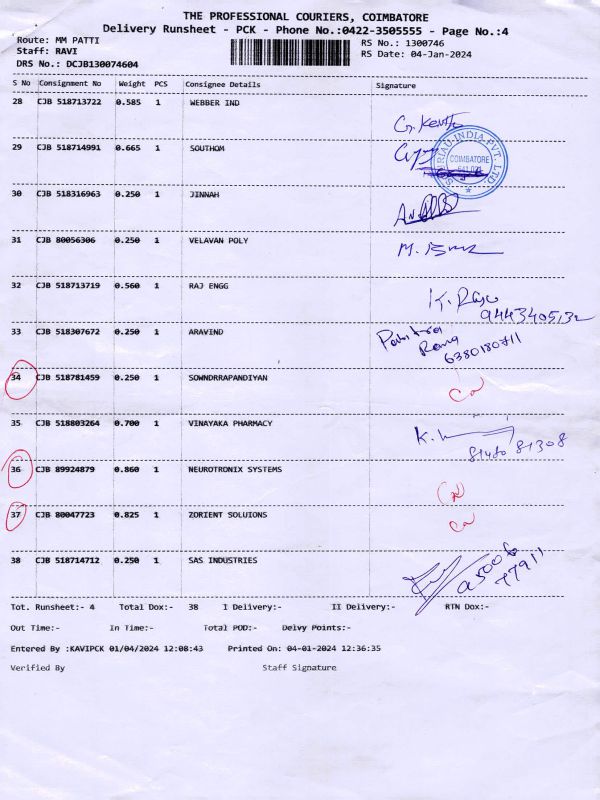 THE PROFESSIONAL COURIERS, COIMBATORE
Delivery Runsheet - PCK - Phone No.:0422-3505555 - Page No.:4
Route: MM PATTI RS No.: 1300746
Staff: RAVI RS Date: 04-Jan-2024
DRS No.: DCJB130074604
S No Consignment No Weight PCS Consignee Details Signature
28 CJB 518713722 0.585 1 WEBBER IND
29 CJB 518714991 0.665 1 SOUTHOM
COIMBATORE
30 CJB 518316963 0.250 1 JINNAH
31 CJB 80056306 0.250 1 VELAVAN POLY
32 CJB 518713719 0.560 1 RAJ ENGG
K. Raju
9443405132
33 CJB 518307672 0.250 1 ARAVIND
6380180711
34 CJB 518781459 0.250 1 SOWNDRRAPANDIYAN
35 CJB 518803264 0.700 1 VINAYAKA PHARMACY
36 CJB 89924879 0.860 1 NEUROTRONIX SYSTEMS
37 CJB 80047723 0.825 1 ZORIENT SOLUIONS
38 CJB 518714712 0.250 1 SAS INDUSTRIES
Tot. Runsheet:- 4 Total Dox:- 38 I Delivery:- II Delivery:- RTN Dox:-
Out Time:- In Time:- Total POD:- Delvy Points:-
Entered By :KAVIPCK 01/04/2024 12:08:43 Printed On: 04-01-2024 12:36:35
Verified By Staff Signature